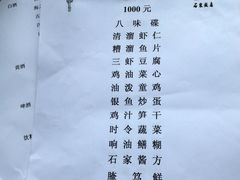 石家饭店
1000 元
八味碟
清溜虾仁
糟溜鱼片
三虾豆腐
鸡油菜心
油泼童鸡
银鱼炒蛋
鸡汁笋干
时令蔬菜
响油鳝糊
石家酱方
腌笃鲜
白酒
黄酒
啤酒
饮料